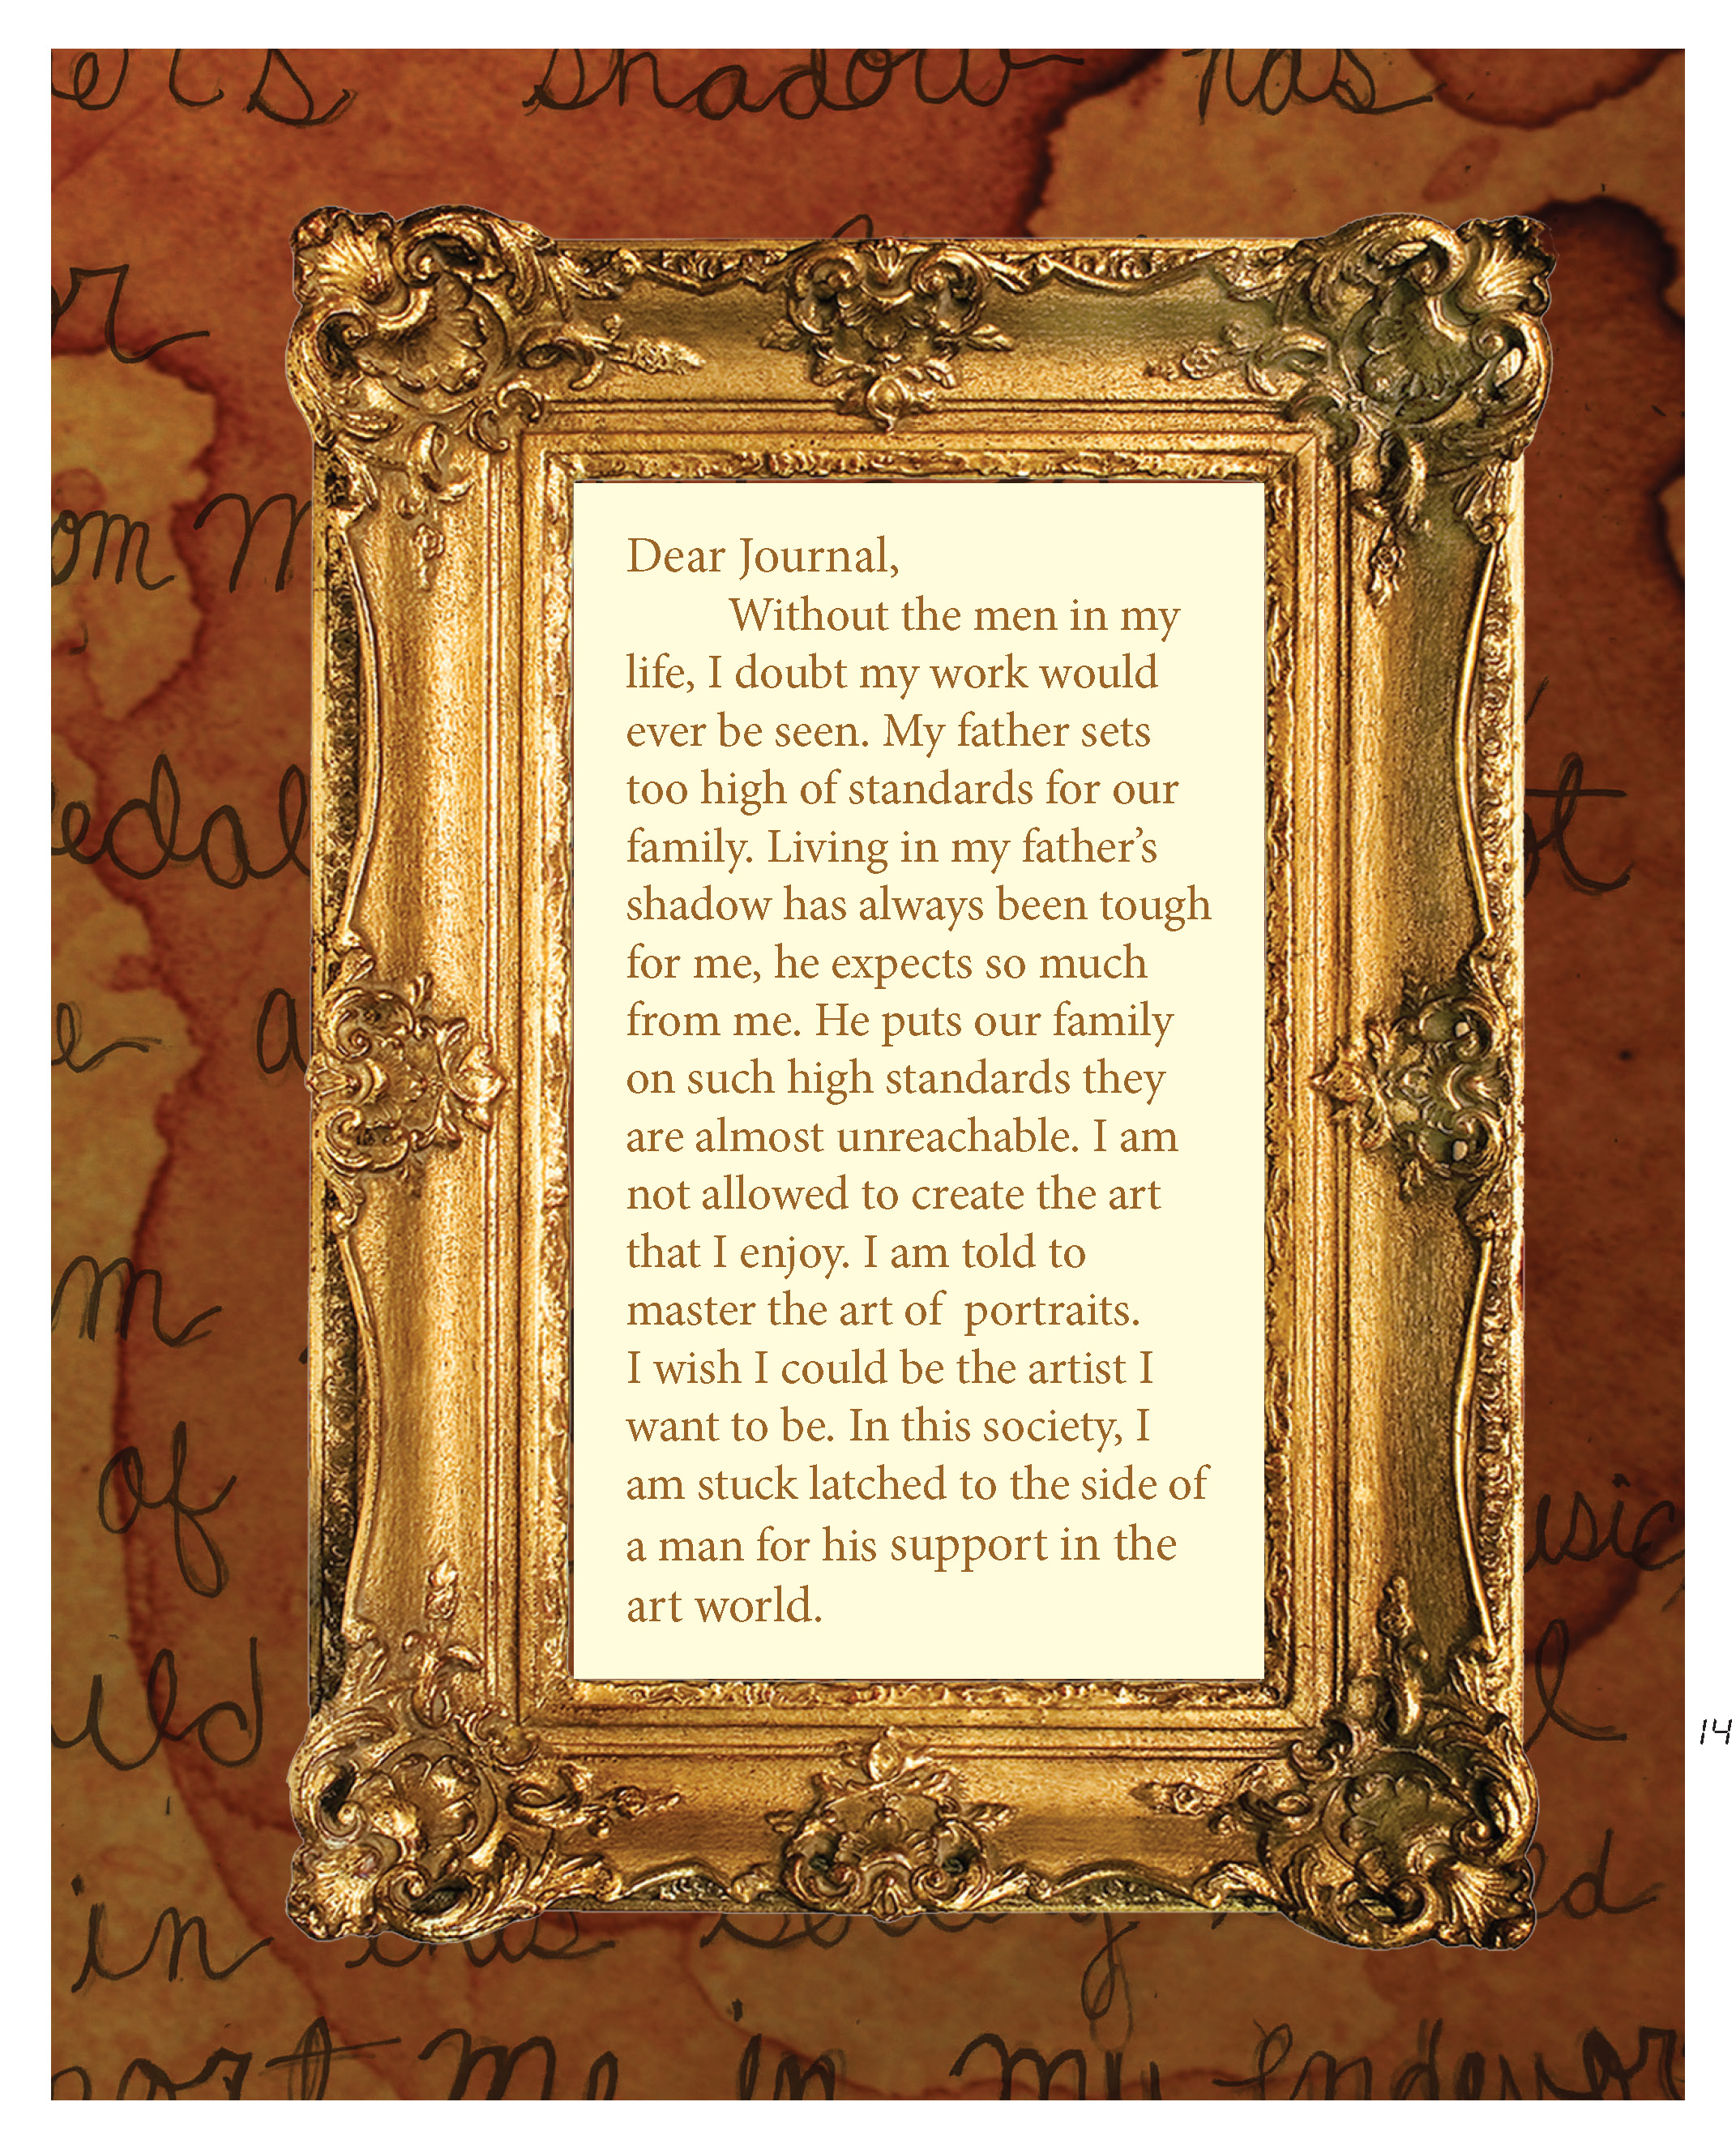 er's shadow has
r
om m
edal t
e a
m
of usic,
uld l
ld
in this society
port me in my endevor
Dear Journal,
Without the men in my
life, I doubt my work would
ever be seen. My father sets
too high of standards for our
family. Living in my father’s
shadow has always been tough
for me, he expects so much
from me. He puts our family
on such high standards they
are almost unreachable. I am
not allowed to create the art
that I enjoy. I am told to
master the art of portraits.
I wish I could be the artist I
want to be. In this society, I
am stuck latched to the side of
a man for his support in the
art world.
14